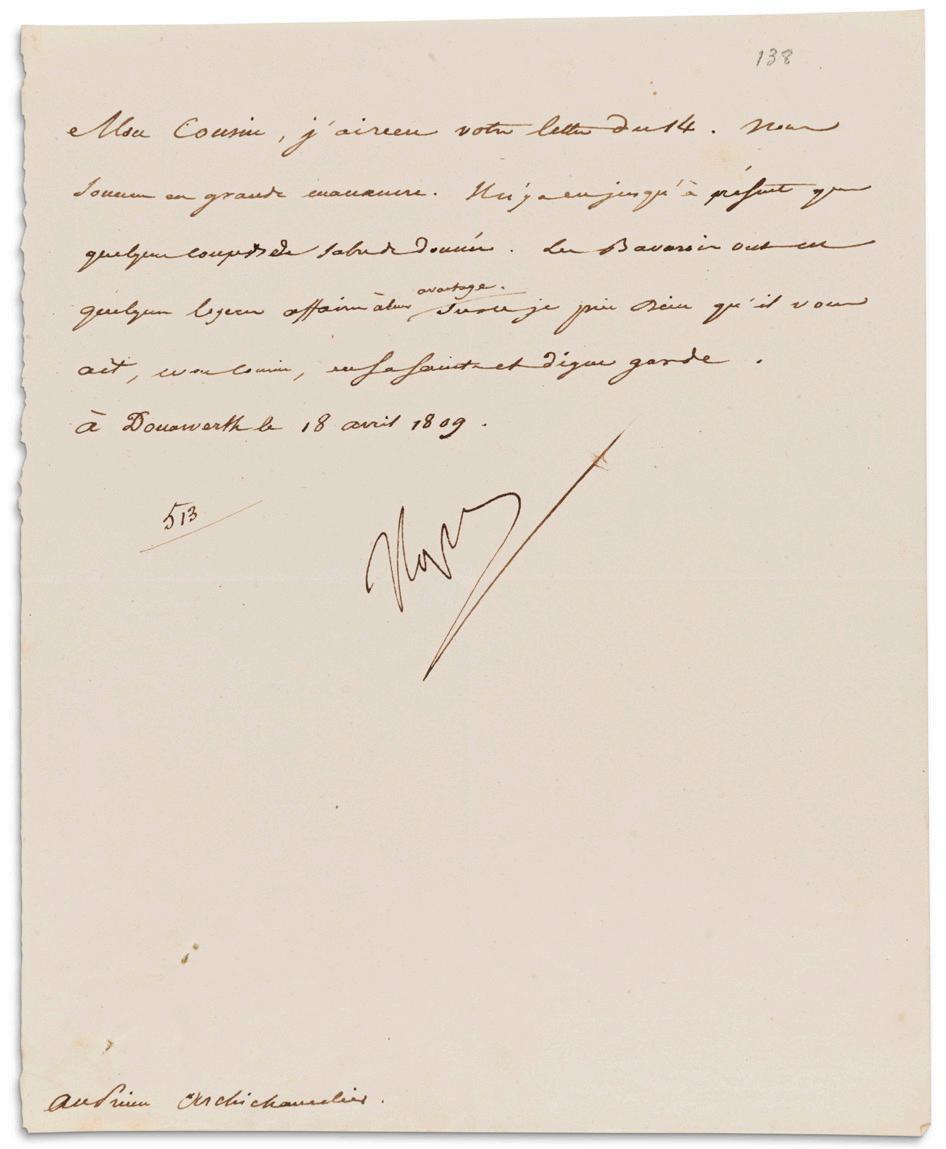 138
Mon Cousin, j'ai reçu votre lettre du 14. Nous
sommes en grande manœuvre. Il n'y a eu jusqu'à présent que
quelques coups de sabre de donnés. Les Bavarois ont eu
quelques légères affaires à leur avantage. Sur ce je prie Dieu qu'il vous
ait, mon cousin, en sa sainte et digne garde.
à Donawerth le 18 avril 1809.
513
Nap
au Prince Archichancelier.